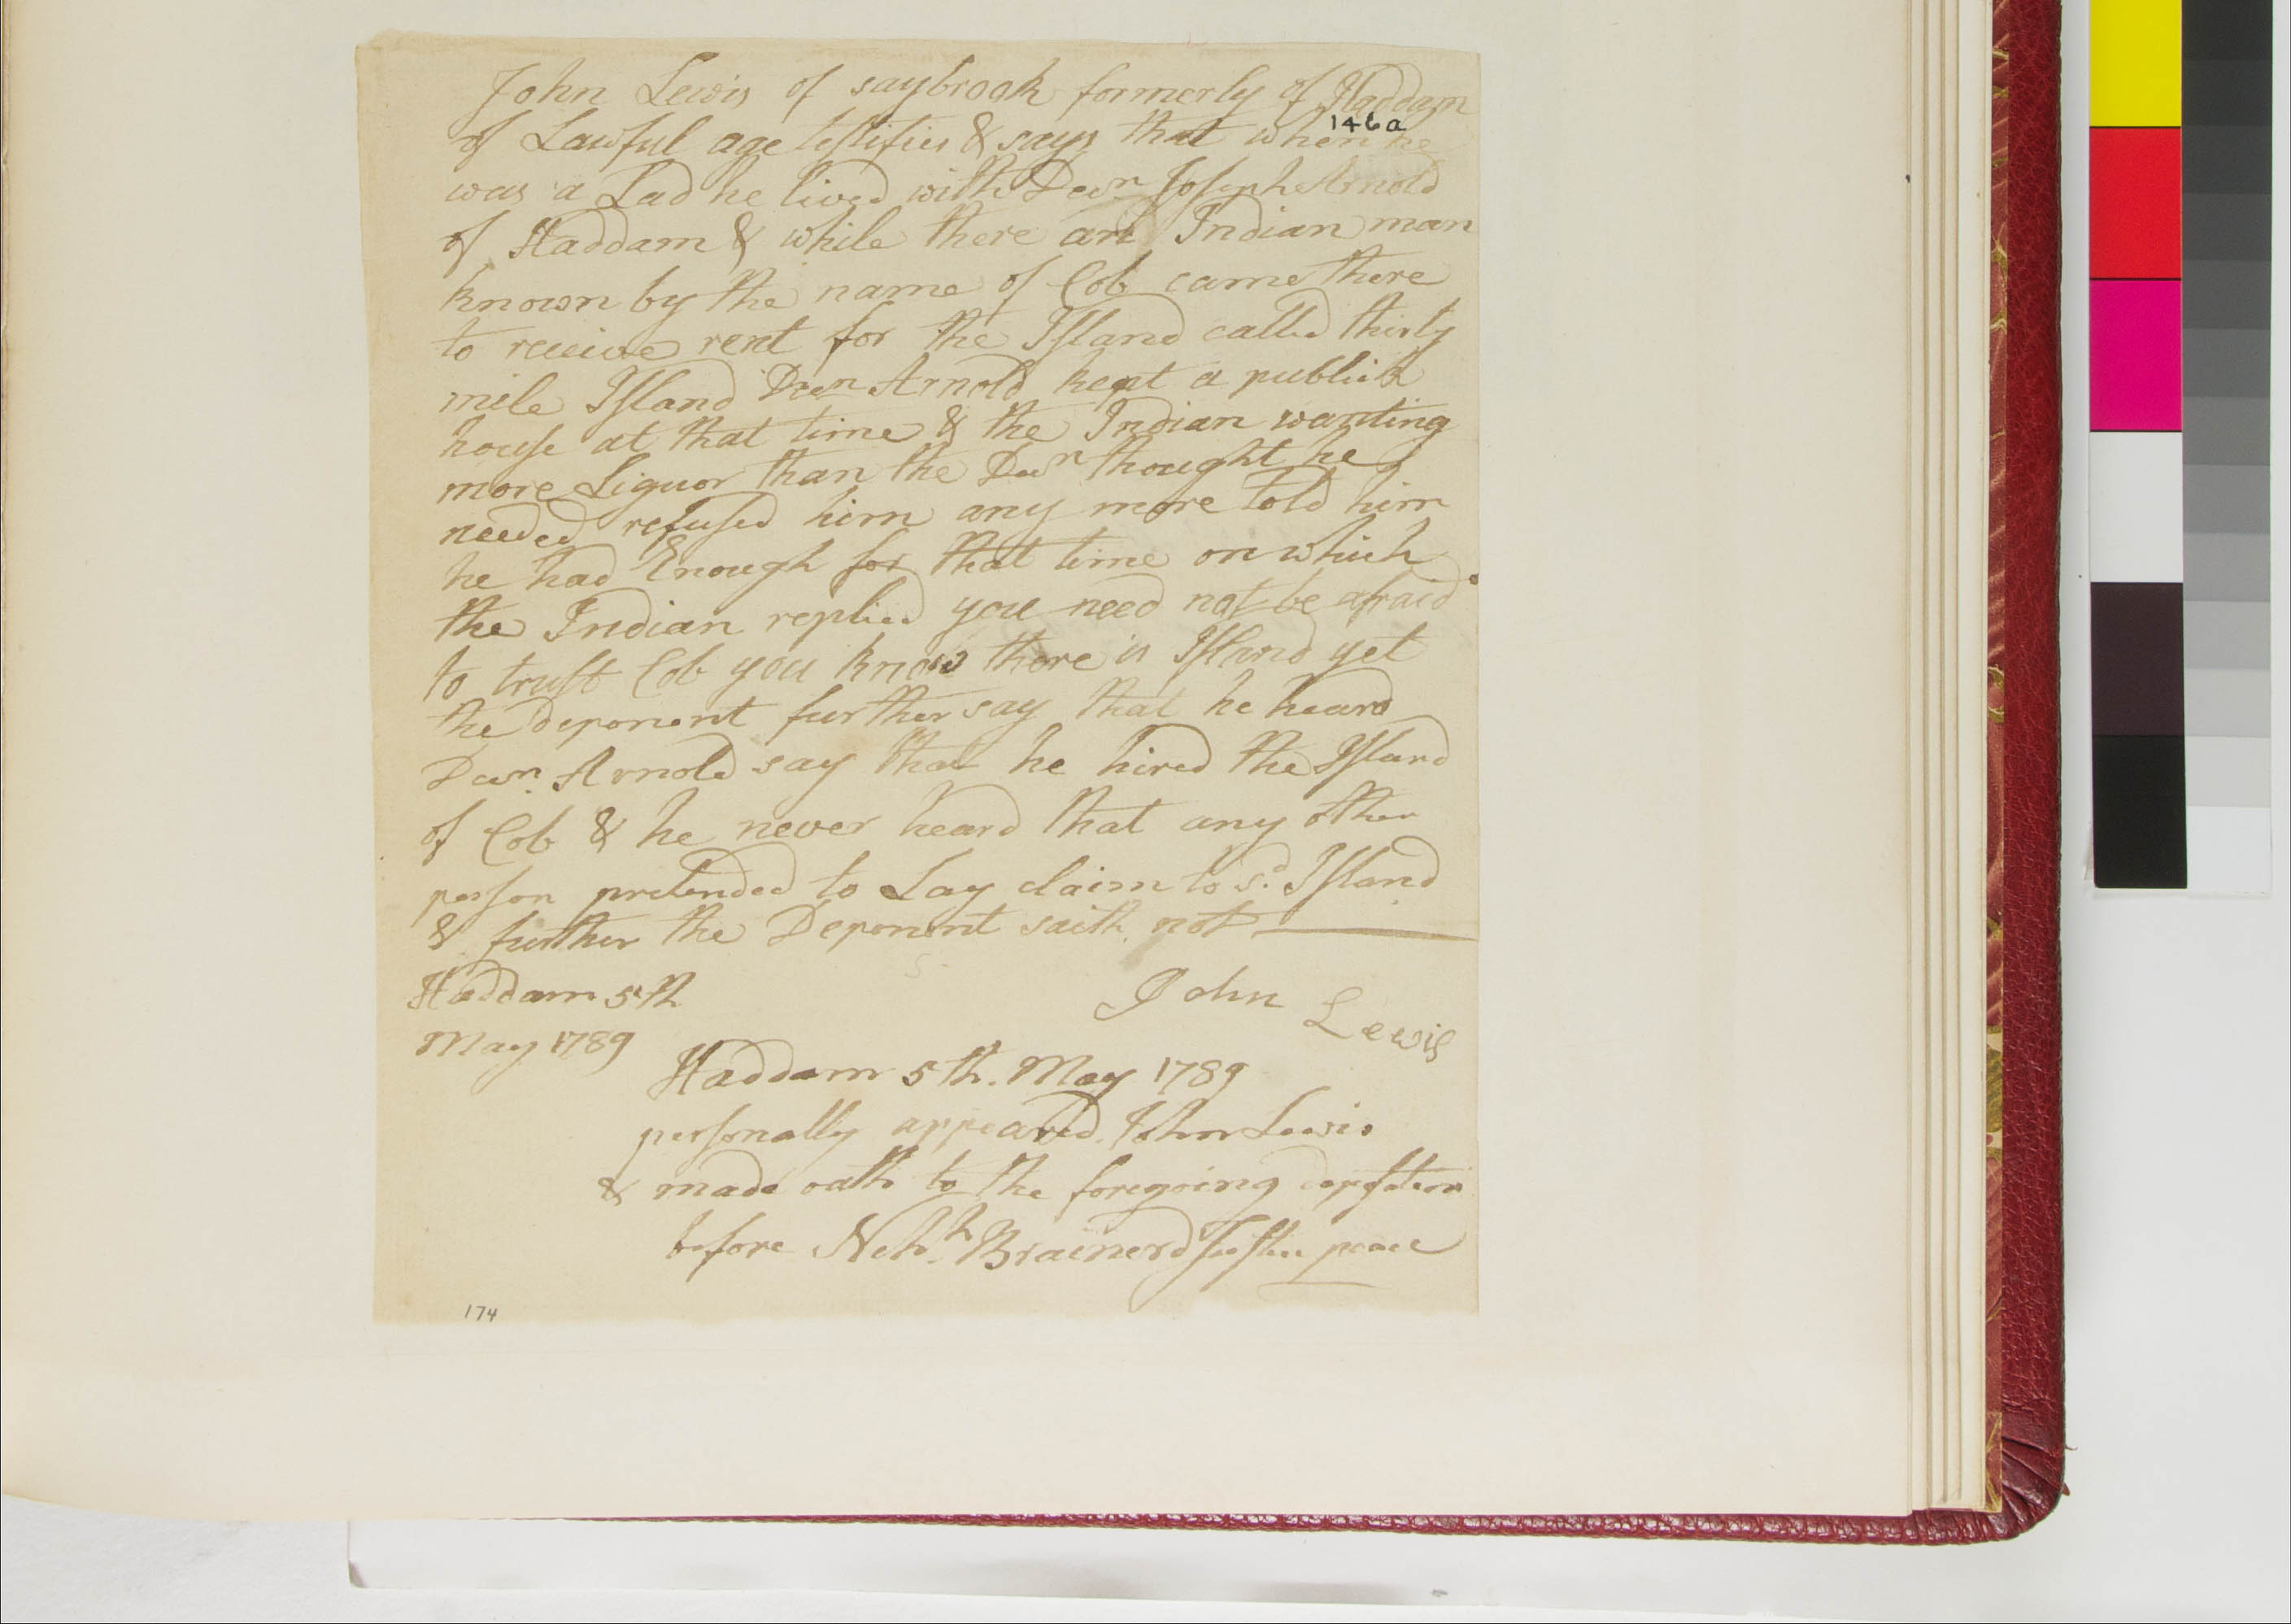 John Lewis of saybrook formerly of Haddam
146a
of Lawful age testifies & says that when he
was a Lad he lived with Deacn Joseph Arnold
of Haddam & while there an Indian man
known by the name of Cob came there
to receive rent for the Island called thirty
mile Island Deacn Arnold kept a publick
house at that time & the Indian wanting
more Liquor than the Deacn thought he
needed refused him any more told him
he had Enough for that time on which
the Indian replied you need not be afraid
to trust Cob you know there is Island yet
the deponent further say that he heard
Deacn. Arnold say that he hired the Island
of Cob & he never heard that any other
person pretended to Lay claim to sd. Island
& further the Deponent saith not
Haddam 5th
May 1789
John Lewis
Haddam 5th. May 1789
personally appeared John Lewis
& made oath to the foregoing deposition
before Nehh. Brainerd Justice peace
174